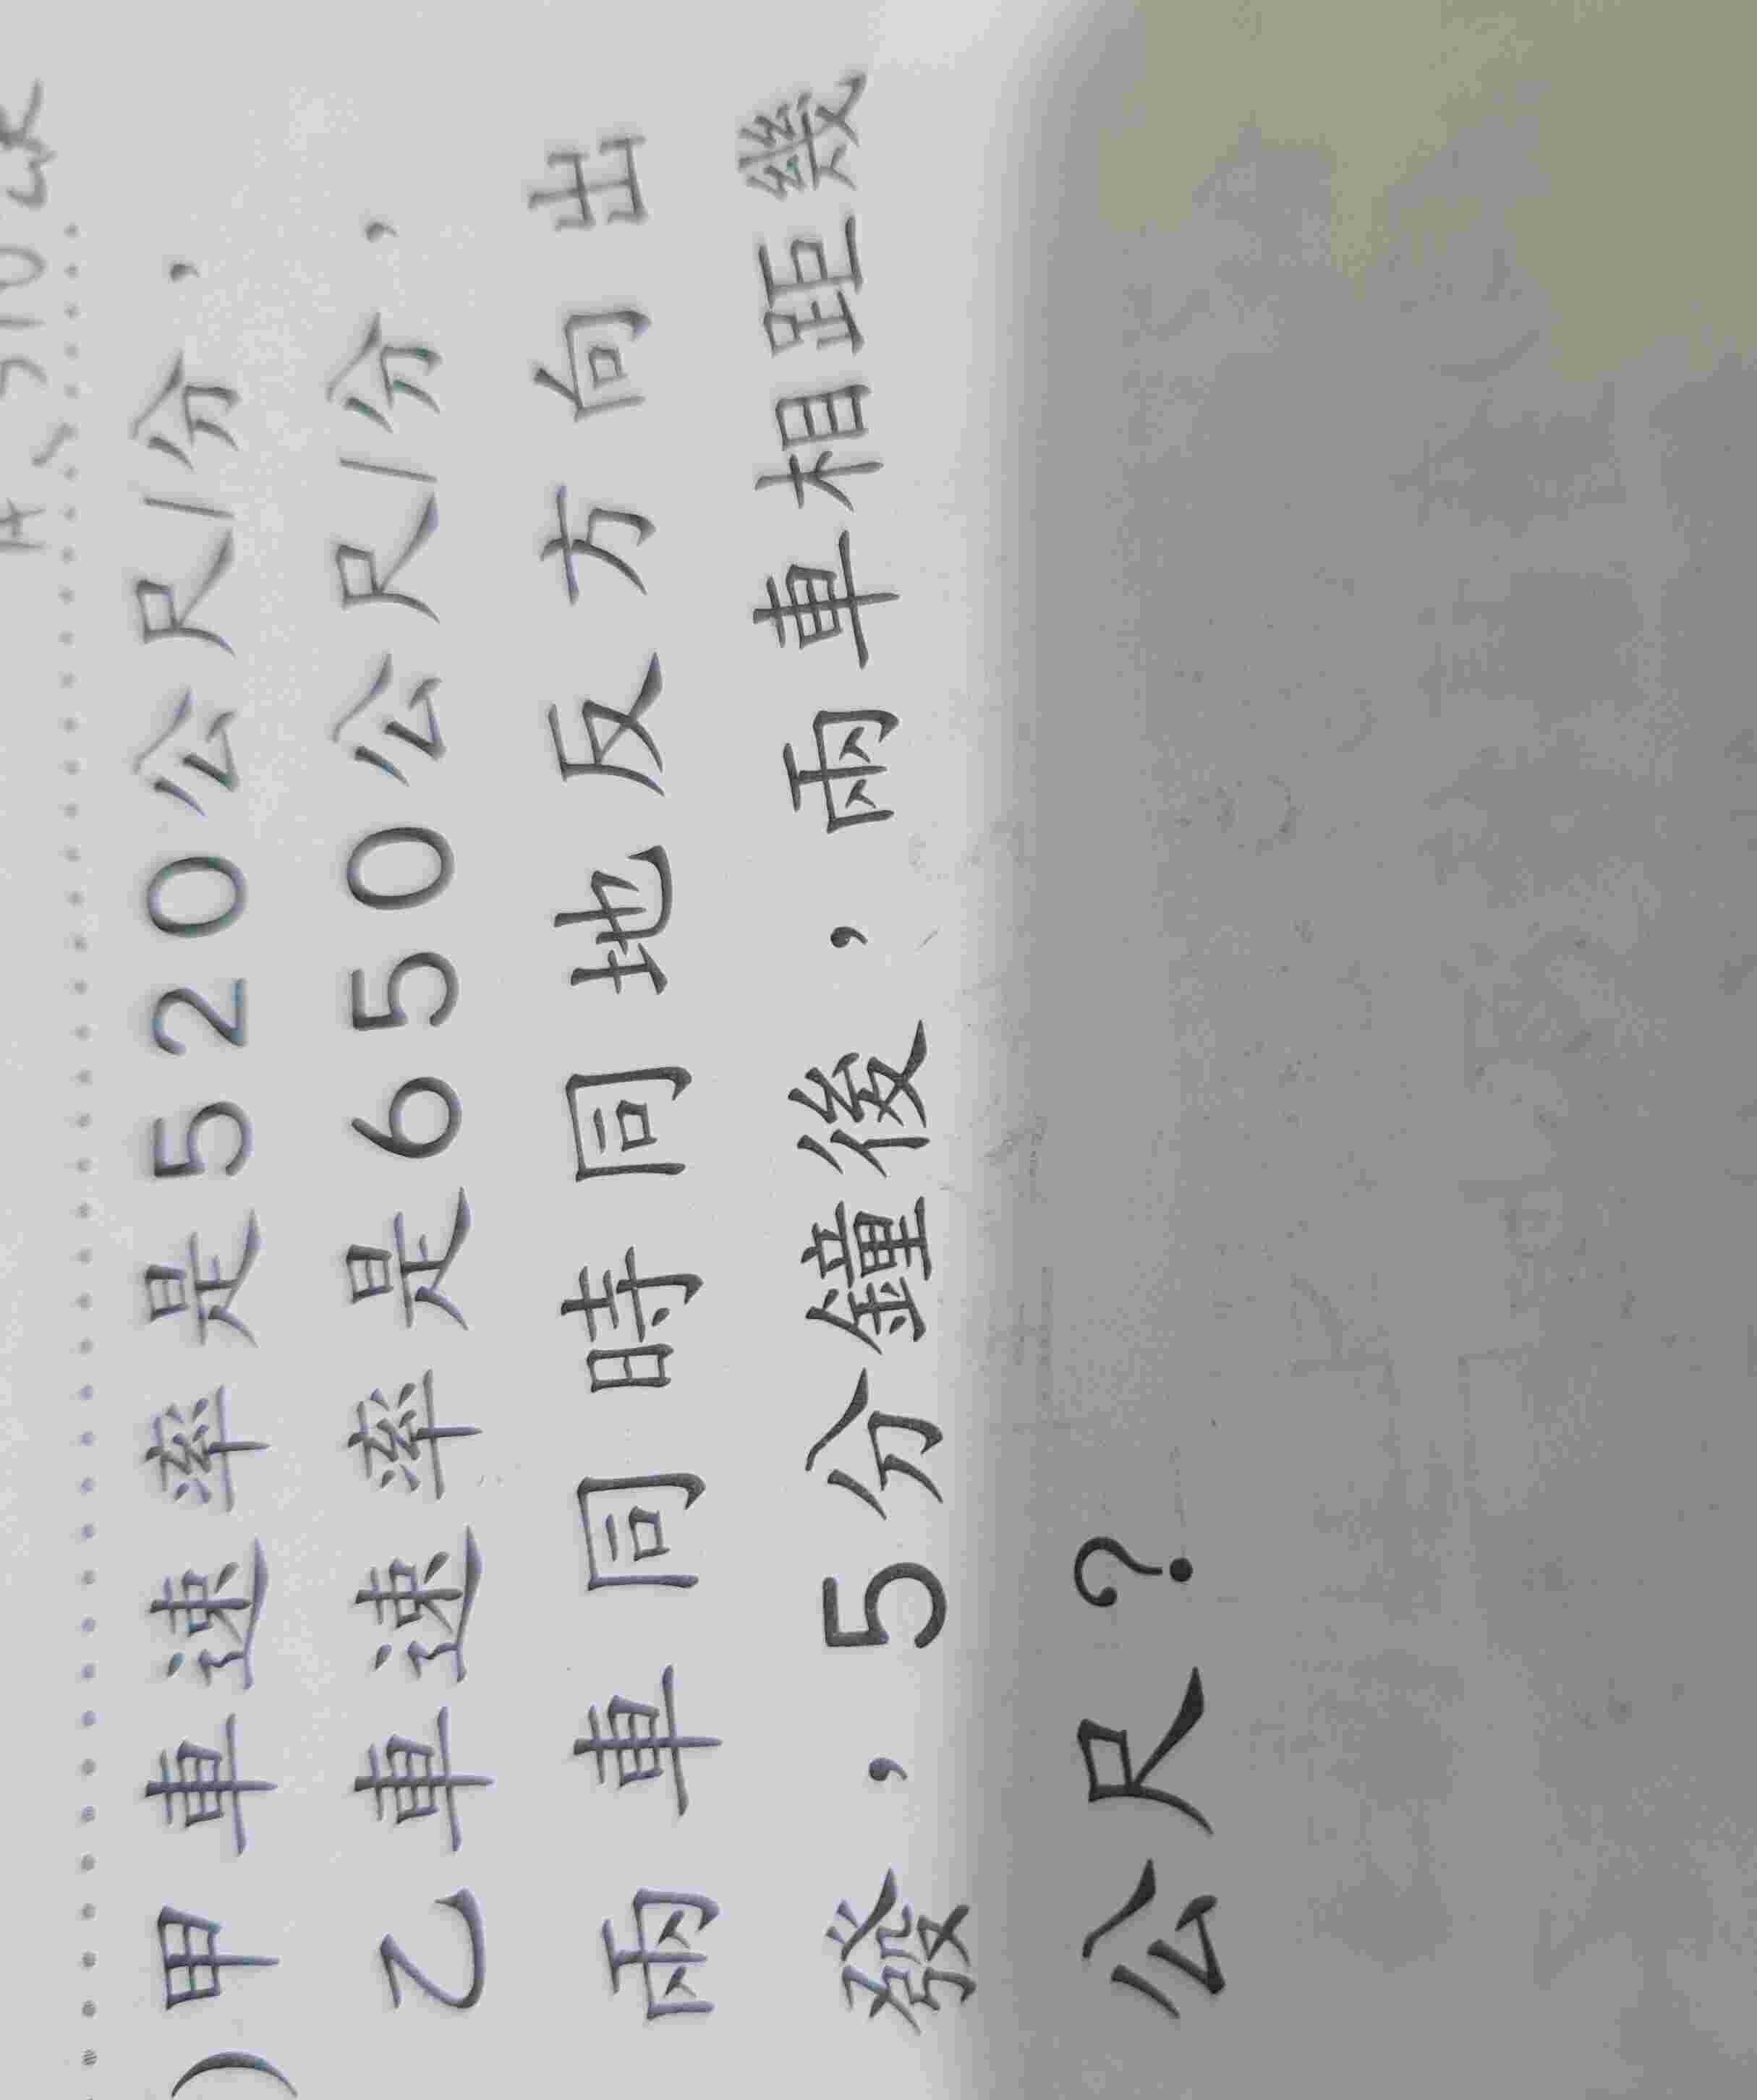 )甲車速率是520公尺/分，
乙車速率是650公尺/分，
兩車同時同地反方向出
發，5分鐘後，兩車相距幾
公尺？